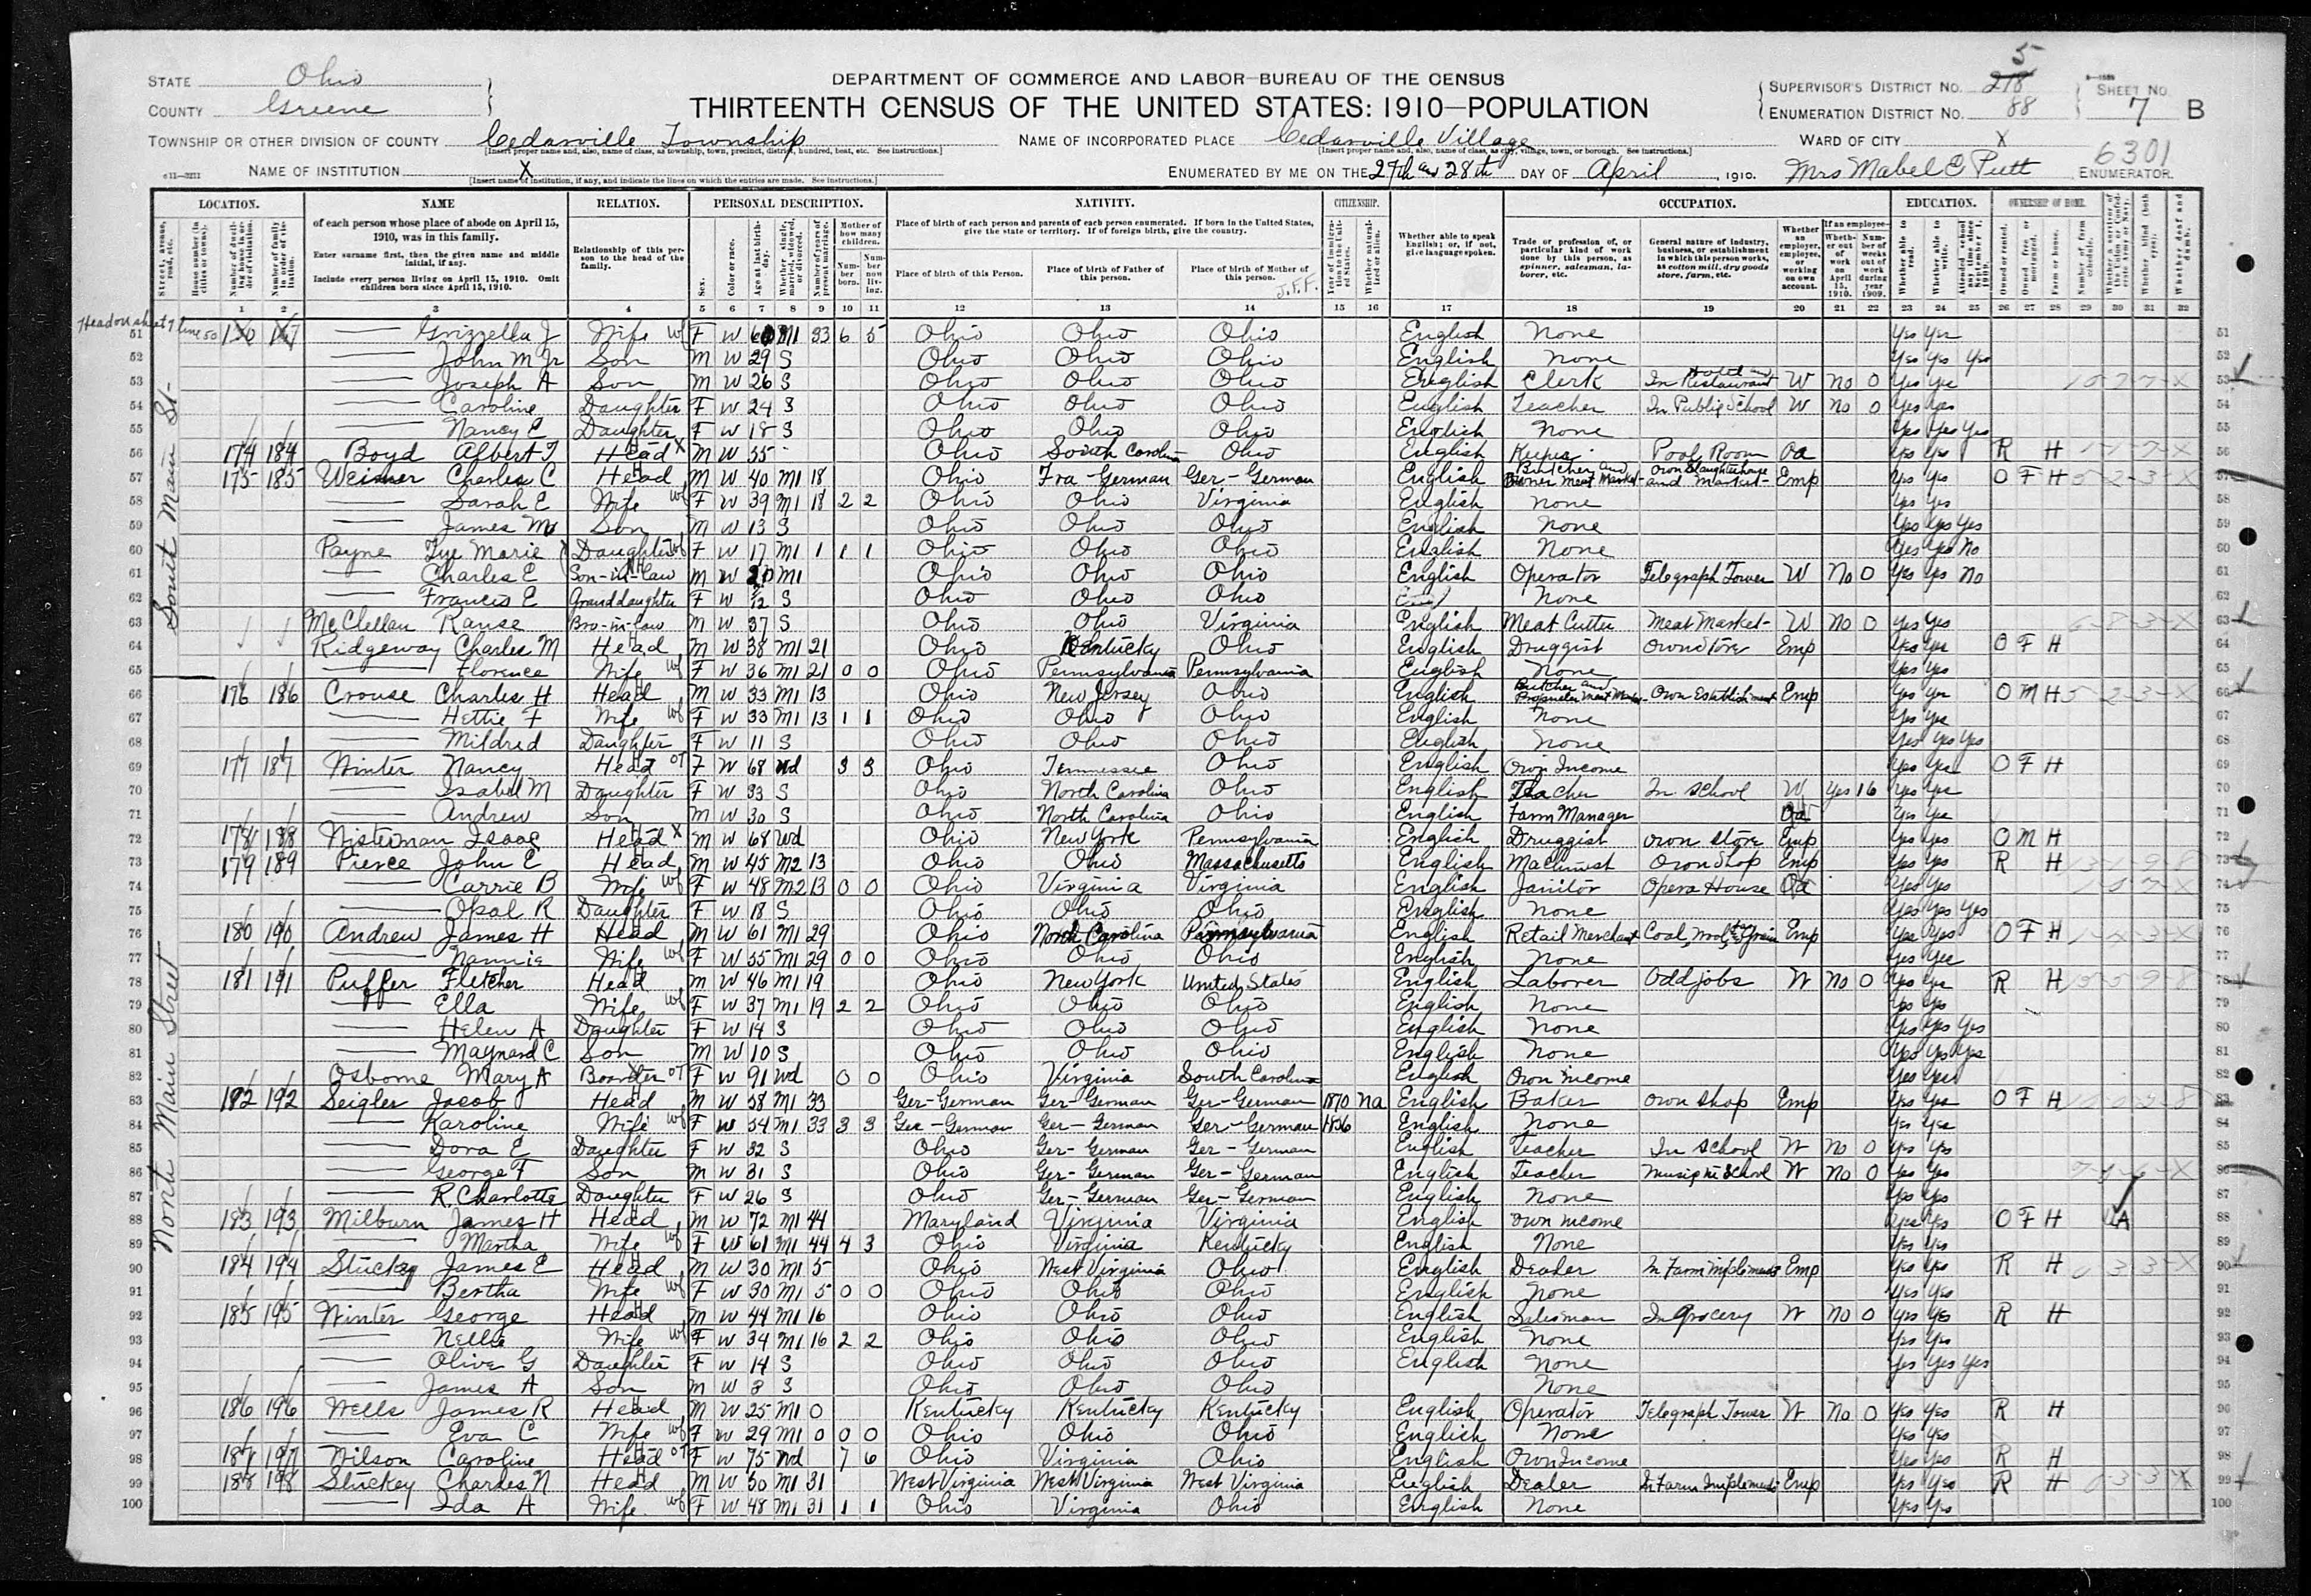 STATE Ohio
COUNTY Greene
DEPARTMENT OF COMMERCE AND LABOR—BUREAU OF THE CENSUS
THIRTEENTH CENSUS OF THE UNITED STATES: 1910—POPULATION
SUPERVISOR'S DISTRICT NO. 218 5
ENUMERATION DISTRICT NO. 88
SHEET NO. 7 B
TOWNSHIP OR OTHER DIVISION OF COUNTY Cedarville Township
[Insert proper name and, also, name of class, as township, town, precinct, district, hundred, beat, etc. See instructions.]
NAME OF INCORPORATED PLACE Cedarville Village
[Insert proper name and, also, name of class, as city, village, town, or borough. See instructions.]
WARD OF CITY X
6301
NAME OF INSTITUTION X
[Insert name of institution, if any, and indicate the lines on which the entries are made. See instructions.]
ENUMERATED BY ME ON THE 27th and 28th DAY OF April, 1910. Mrs Mabel C ENUMERATOR.
LOCATION. NAME RELATION. PERSONAL DESCRIPTION. NATIVITY. CITIZENSHIP. OCCUPATION. EDUCATION. OWNERSHIP OF HOME.
of each person whose place of abode on April 15, 1910, was in this family.
Enter surname first, then the given name and middle initial, if any.
Include every person living on April 15, 1910. Omit children born since April 15, 1910.
Relationship of this person to the head of the family.
Place of birth of each person and parents of each person enumerated. If born in the United States, give the state or territory. If of foreign birth, give the country.
Place of birth of this Person. Place of birth of Father of this person. Place of birth of Mother of this person.
Whether able to speak English; or, if not, give language spoken.
Trade or profession of, or particular kind of work done by this person, as spinner, salesman, laborer, etc.
General nature of industry, business, or establishment in which this person works, as cotton mill, dry goods store, farm, etc.
South Main St
North Main Street
51 Grizzella J Wife F W 60 M1 33 6 5 Ohio Ohio Ohio English None Yes Yes
52 John M Jr Son M W 29 S Ohio Ohio Ohio English None Yes Yes Yes
53 Joseph A Son M W 26 S Ohio Ohio Ohio English Clerk In Hotel and Restaurant W No 0 Yes Yes
54 Caroline Daughter F W 24 S Ohio Ohio Ohio English Teacher In Public School W No 0 Yes Yes
55 Nancy E Daughter F W 18 S Ohio Ohio Ohio English None Yes Yes Yes
56 174 184 Boyd Albert T Head M W 55 Ohio South Carolina Ohio English Keeper Pool Room Oa Yes Yes R H
57 175 185 Weimer Charles C Head M W 40 M1 18 Ohio Fra-German Ger-German English Butcher and Owner Meat Market Own Slaughterhouse and Market Emp Yes Yes O F H
58 Sarah E Wife F W 39 M1 18 2 2 Ohio Ohio Virginia English None Yes Yes
59 James M Son M W 13 S Ohio Ohio Ohio English None Yes Yes Yes
60 Payne Marie Daughter F W 17 M1 1 1 1 Ohio Ohio Ohio English None Yes Yes No
61 Charles E Son-in-law M W 20 M1 Ohio Ohio Ohio English Operator Telegraph Tower W No 0 Yes Yes No
62 Francis E Granddaughter F W S Ohio Ohio Ohio None
63 McClellan Ranse Bro-in-law M W 37 S Ohio Ohio Virginia English Meat Cutter Meat Market W No 0 Yes Yes
64 Ridgeway Charles M Head M W 38 M1 21 Ohio Kentucky Ohio English Druggist Own Store Emp Yes Yes O F H
65 Florence Wife F W 36 M1 21 0 0 Ohio Pennsylvania Pennsylvania English None Yes Yes
66 176 186 Crouse Charles H Head M W 33 M1 13 Ohio New Jersey Ohio English Butcher and Proprietor Meat Market Own Establishment Emp Yes Yes O M H
67 Hettie F Wife F W 33 M1 13 1 1 Ohio Ohio Ohio English None Yes Yes
68 Mildred Daughter F W 11 S Ohio Ohio Ohio English None Yes Yes Yes
69 177 187 Winter Nancy Head F W 68 Wd 3 3 Ohio Tennessee Ohio English Own Income Yes Yes O F H
70 Isabel M Daughter F W 33 S Ohio North Carolina Ohio English Teacher In School W Yes 16 Yes Yes
71 Andrew Son M W 30 S Ohio North Carolina Ohio English Farm Manager Yes Yes
72 178 188 Wisterman Isaac Head M W 68 Wd Ohio New York Pennsylvania English Druggist Own Store Emp Yes Yes O M H
73 179 189 Pierce John E Head M W 45 M2 13 Ohio Ohio Massachusetts English Machinist Own Shop Emp Yes Yes R H
74 Carrie B Wife F W 48 M2 13 0 0 Ohio Virginia Virginia English Janitor Opera House Oa Yes Yes
75 Opal R Daughter F W 18 S Ohio Ohio Ohio English None Yes Yes Yes
76 180 190 Andrew James H Head M W 61 M1 29 Ohio North Carolina Pennsylvania English Retail Merchant Coal, Wool & Grain Emp Yes Yes O F H
77 Nannie Wife F W 55 M1 29 0 0 Ohio Ohio Ohio English None Yes Yes
78 181 191 Puffer Fletcher Head M W 46 M1 19 Ohio New York United States English Laborer Odd jobs W No 0 Yes Yes R H
79 Ella Wife F W 37 M1 19 2 2 Ohio Ohio Ohio English None Yes Yes
80 Helen A Daughter F W 14 S Ohio Ohio Ohio English None Yes Yes Yes
81 Maynard C Son M W 10 S Ohio Ohio Ohio English None Yes Yes Yes
82 Osborne Mary A Boarder F W 91 Wd 0 0 Ohio Virginia South Carolina English Own income Yes Yes
83 182 192 Seigler Jacob Head M W 58 M1 33 Ger-German Ger-German Ger-German 1870 Na English Baker Own shop Emp Yes Yes O F H
84 Karoline Wife F W 54 M1 33 3 3 Ger-German Ger-German Ger-German 1856 English None Yes Yes
85 Dora E Daughter F W 32 S Ohio Ger-German Ger-German English Teacher In School W No 0 Yes Yes
86 George F Son M W 31 S Ohio Ger-German Ger-German English Teacher Music in School W No 0 Yes Yes
87 R Charlotte Daughter F W 26 S Ohio Ger-German Ger-German English None Yes Yes
88 183 193 Milburn James H Head M W 72 M1 44 Maryland Virginia Virginia English Own income Yes Yes O F H UA
89 Martha Wife F W 61 M1 44 4 3 Ohio Virginia Kentucky English None Yes Yes
90 184 194 Stuckey James E Head M W 30 M1 5 Ohio West Virginia Ohio English Dealer In Farm Implements Emp Yes Yes R H
91 Bertha Wife F W 30 M1 5 0 0 Ohio Ohio Ohio English None Yes Yes
92 185 195 Winter George Head M W 44 M1 16 Ohio Ohio Ohio English Salesman In Grocery W No 0 Yes Yes R H
93 Nelle Wife F W 34 M1 16 2 2 Ohio Ohio Ohio English None Yes Yes
94 Olive G Daughter F W 14 S Ohio Ohio Ohio English None Yes Yes Yes
95 James A Son M W 3 S Ohio Ohio Ohio None
96 186 196 Wells James R Head M W 25 M1 0 Kentucky Kentucky Kentucky English Operator Telegraph Tower W No 0 Yes Yes R H
97 Eva C Wife F W 29 M1 0 0 0 Ohio Ohio Ohio English None Yes Yes
98 187 197 Wilson Caroline Head F W 75 Wd 7 6 Ohio Virginia Ohio English Own Income Yes Yes R H
99 188 198 Stuckey Charles N Head M W 50 M1 31 West Virginia West Virginia West Virginia English Dealer In Farm Implements Emp Yes Yes R H
100 Ida A Wife F W 48 M1 31 1 1 Ohio Virginia Ohio English None Yes Yes